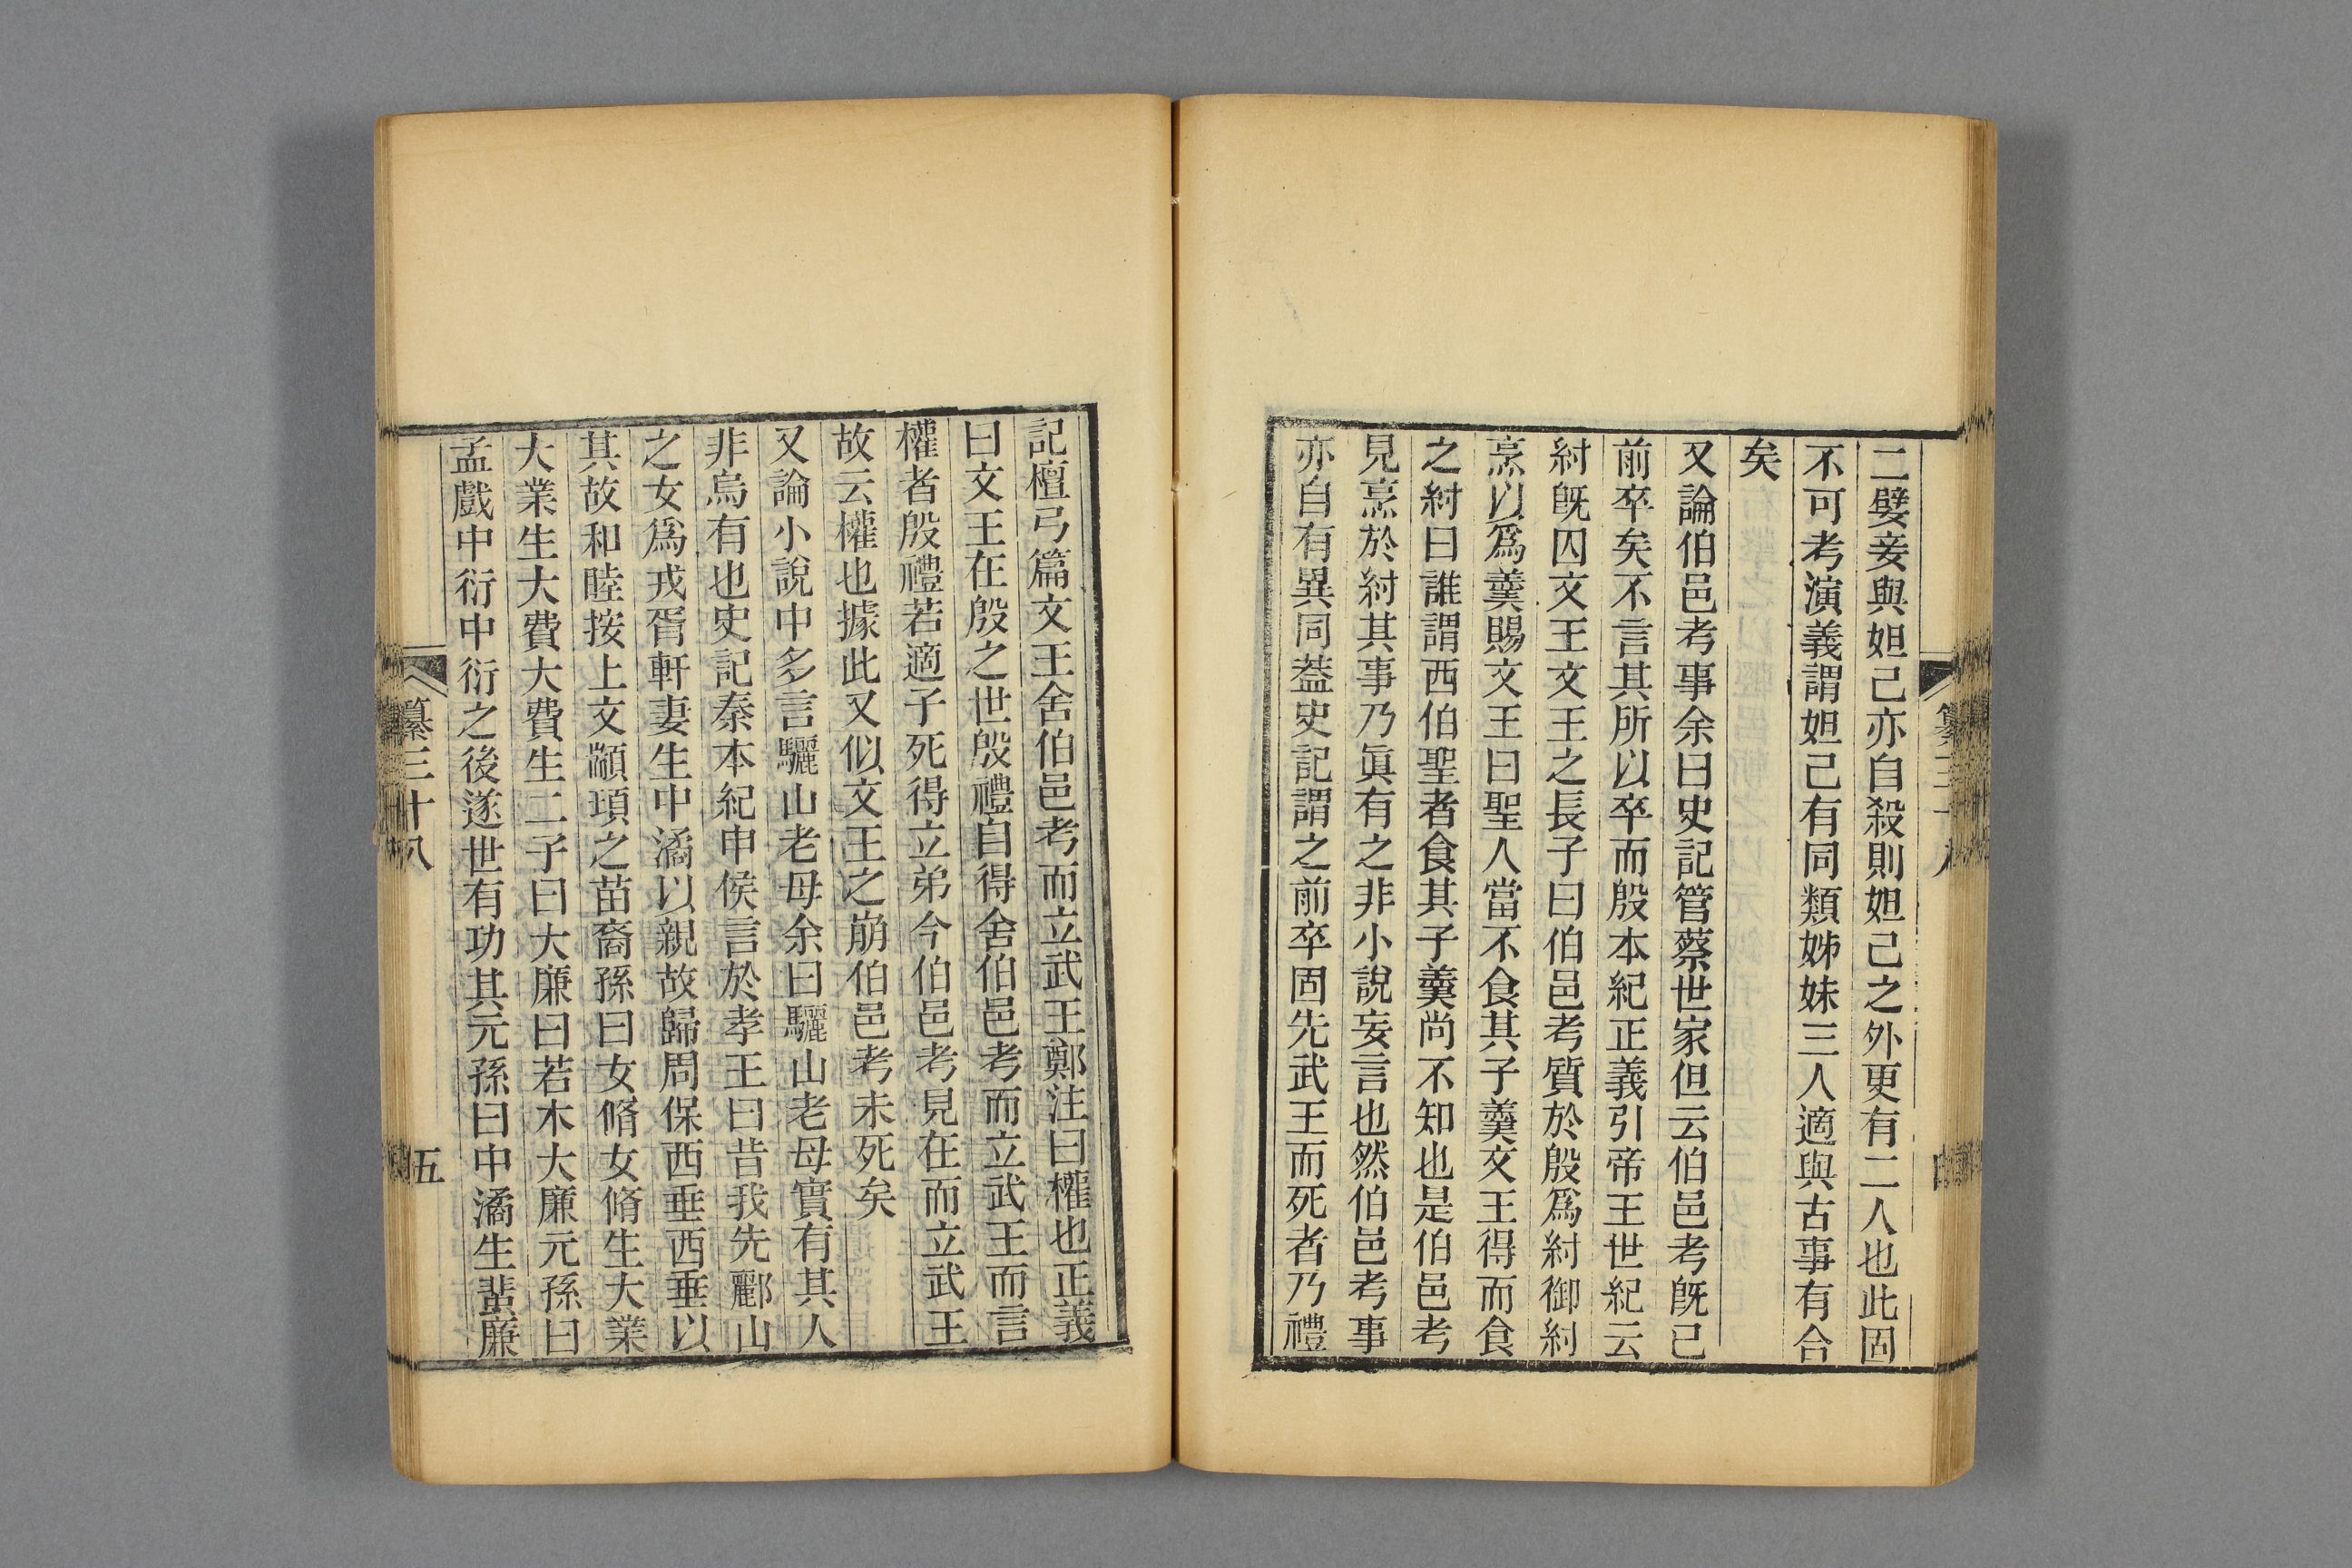 二嬖妾與妲己亦自殺則妲己之外更有二人也此固
不可考演義謂妲己有同類姊妹三人適與古事有合
矣
又論伯邑考事余曰史記管蔡世家但云伯邑考旣已
前卒矣不言其所以卒而殷本紀正義引帝王世紀云
紂旣囚文王文王之長子曰伯邑考質於殷爲紂御紂
烹以爲羹賜文王曰聖人當不食其子羹文王得而食
之紂曰誰謂西伯聖者食其子羹尚不知也是伯邑考
見烹於紂其事乃眞有之非小說妄言也然伯邑考事
亦自有異同葢史記謂之前卒固先武王而死者乃禮
記檀弓篇文王舍伯邑考而立武王鄭注曰權也正義
曰文王在殷之世殷禮自得舍伯邑考而立武王而言
權者殷禮若適子死得立弟今伯邑考見在而立武王
故云權也據此又似文王之崩伯邑考未死矣
又論小說中多言驪山老母余曰驪山老母實有其人
非烏有也史記秦本紀申侯言於孝王曰昔我先酈山
之女爲戎胥軒妻生中潏以親故歸周保西垂西垂以
其故和睦按上文顓頊之苗裔孫曰女脩女脩生大業
大業生大費大費生二子曰大廉曰若木大廉元孫曰
孟戲中衍中衍之後遂世有功其元孫曰中潏生蜚廉
纂三十八
五